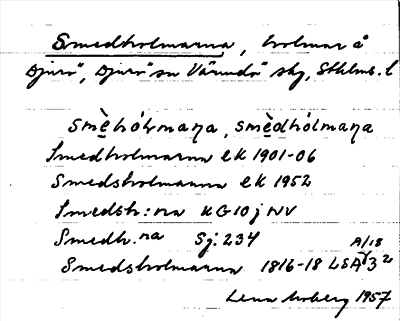 Smedholmarna, holmar å
Djurö, Djurö sn Värmdö skg, Sthlms. l
smèhólmaṇa, smèdhólmaṇa
Smedholmarna EK 1901-06
Smedsholmarna EK 1952
Smedsh:na KG10j NV
Smedh.na Sj: 234
Smedsholmarna 1816-18 LSA A/18 3²
Lena Moberg 1957